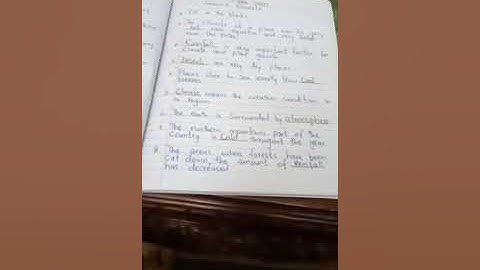 Climate
Fill in the blanks
The climate of a place can be very
hot near equator and very cold
near the poles
Rainfall is very important factor for
climate and plant growth
Deserts are very dry places
Places close to sea usually have cool
breezes
Climate means the weather condition in
a region
The earth is surrounded by atmosphere
The northern mountains part of the
country is Cold throughout the year
8. The areas where forests have been
cut down, the amount of rainfall
has decreased